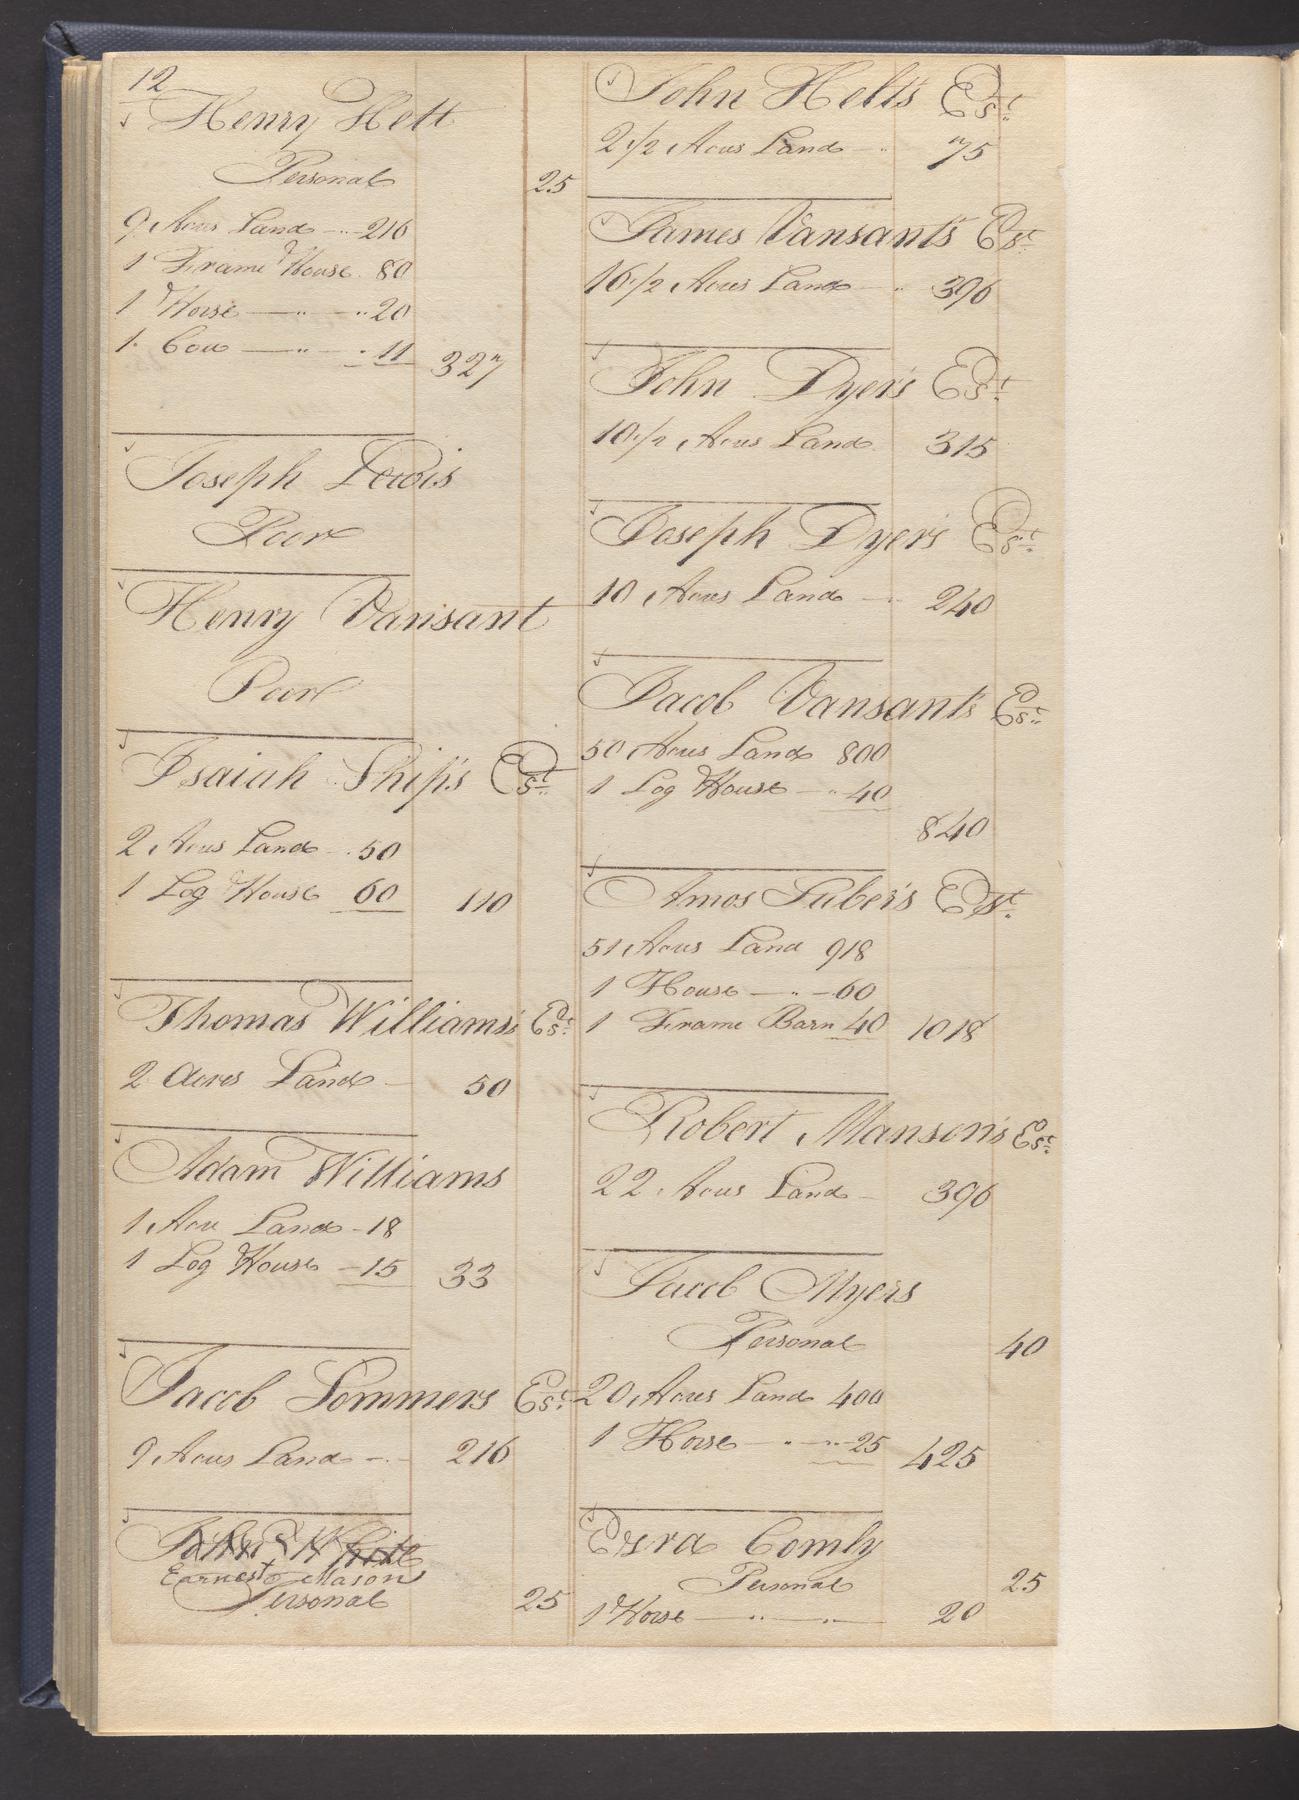 12
Henry Helt
Personal 25
9 Acres Land 216
1 Frame House 80
1 Horse 20
1 Cow 11 327
Joseph Lewis
Poor
Henry Vansant
Poor
Isaiah Ship's Est
2 Acres Land 50
1 Log House 60 110
Thomas Williams's Est
2 Acres Land 50
Adam Williams
1 Acre Land 18
1 Log House 15 33
Jacob Sommers Est
9 Acres Land 216
John White
Earnest Mason
Personal 25
John Helts Est
2 1/2 Acres Land 75
James Vansants Est
16 1/2 Acres Land 396
John Dyer's Est
10 1/2 Acres Land 315
Joseph Dyer's Est
10 Acres Land 240
Jacob Vansants Est
50 Acres Land 800
1 Log House 40
840
Amos Suber's Est
51 Acres Land 918
1 House 60
1 Frame Barn 40 1018
Robert Manson's Est
22 Acres Land 396
Jacob Myers
Personal 40
20 Acres Land 400
1 Horse 25 425
Ezra Comly
Personal 25
1 Horse 20